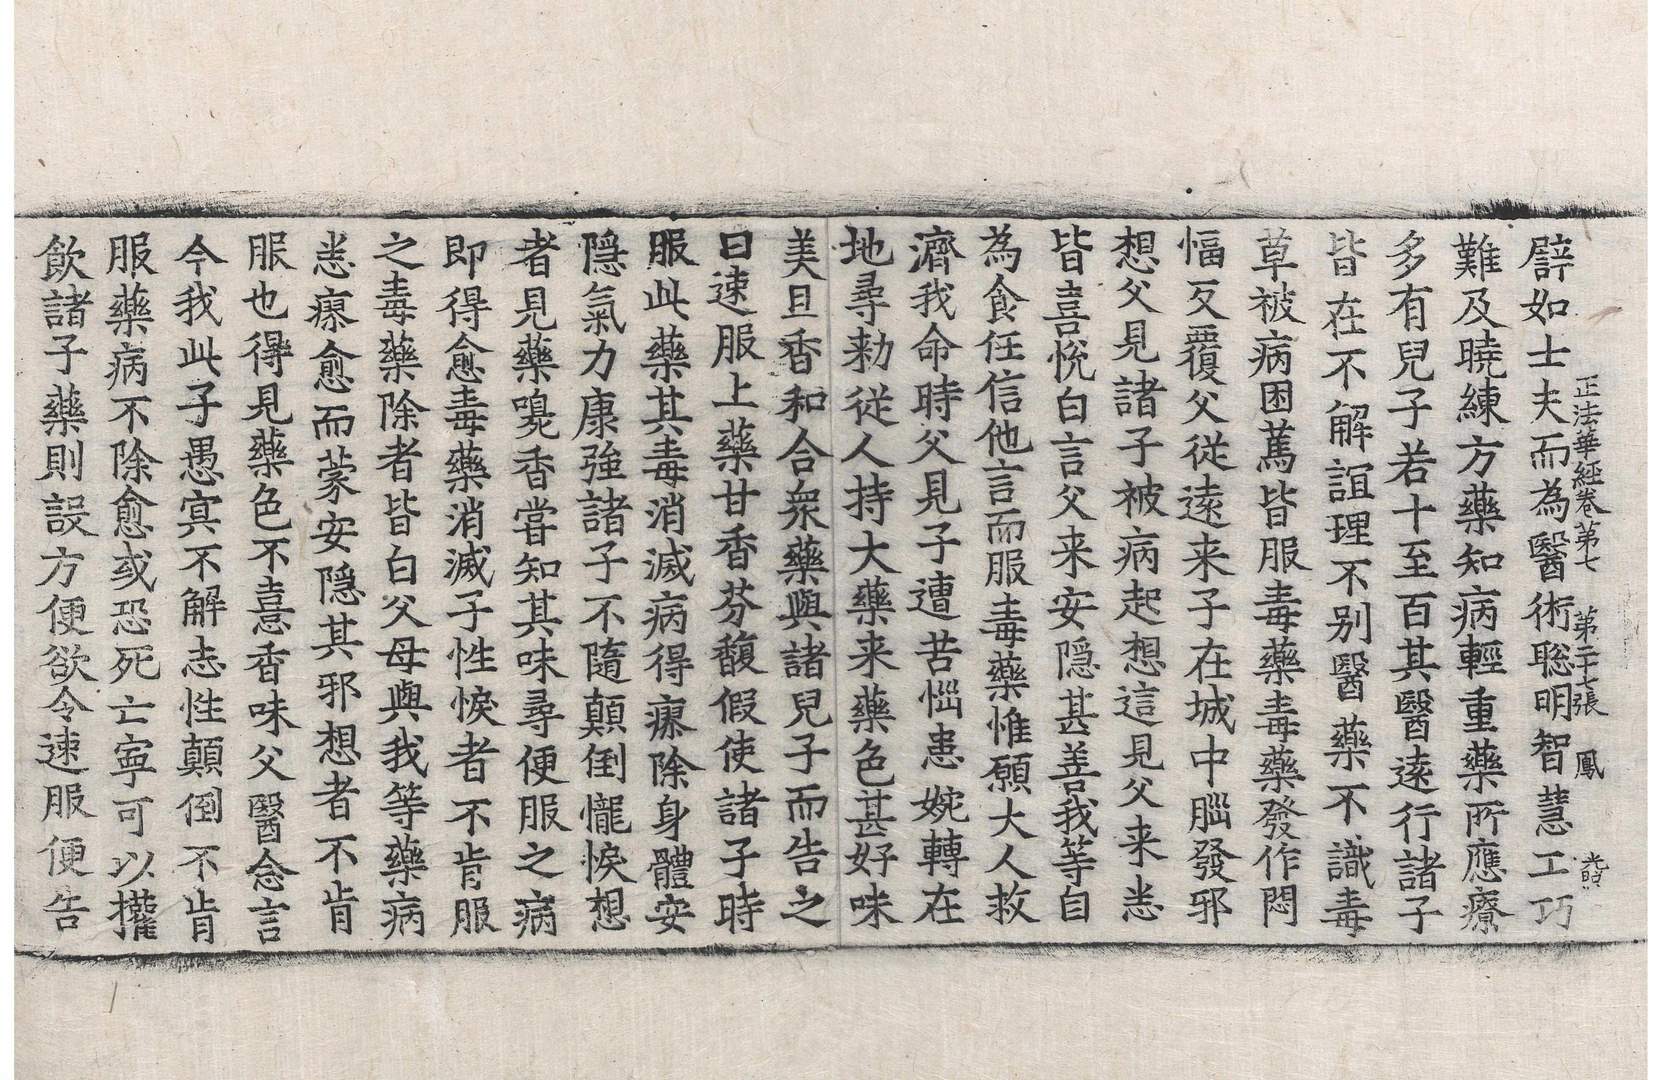 正法華經卷第七 第二十七張 鳳
譬如士夫而為醫術聦明智慧工巧
難及曉練方藥知病輕重藥所應療
多有兒子若十至百其醫遠行諸子
皆在不解誼理不别醫藥不識毒
草被病困篤皆服毒藥毒藥發作悶
愊反覆父從遠来子在城中腦發邪
想父見諸子被病起想這見父来悉
皆喜悅白言父来安隱甚善我等自
為食任信他言而服毒藥惟願大人救
濟我命時父見子遭苦惱患婉轉在
地尋勑從人持大藥来藥色甚好味
美且香和合衆藥與諸兒子而告之
曰速服上藥甘香芬馥假使諸子時
服此藥其毒消滅病得瘳除身體安
隱氣力康強諸子不隨顛倒𢤱悷想
者見藥嗅香嘗知其味尋便服之病
即得愈毒藥消滅子性悷者不肯服
之毒藥除者皆白父母與我等藥病
悉瘳愈而蒙安隱其邪想者不肯
服也得見藥色不憙香味父醫念言
今我此子愚冥不解志性顛倒不肯
服藥病不除愈或恐死亡寧可以權
飲諸子藥則設方便欲令速服便告